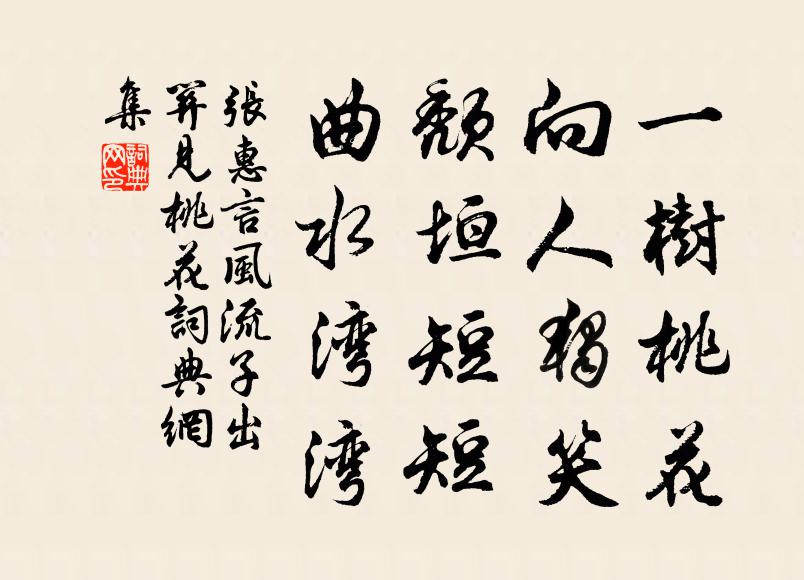 一樹桃花
向人獨笑
頹垣短短
曲水湾湾
張惠言風流子出
關見桃花詞典網
集
詞典
网印